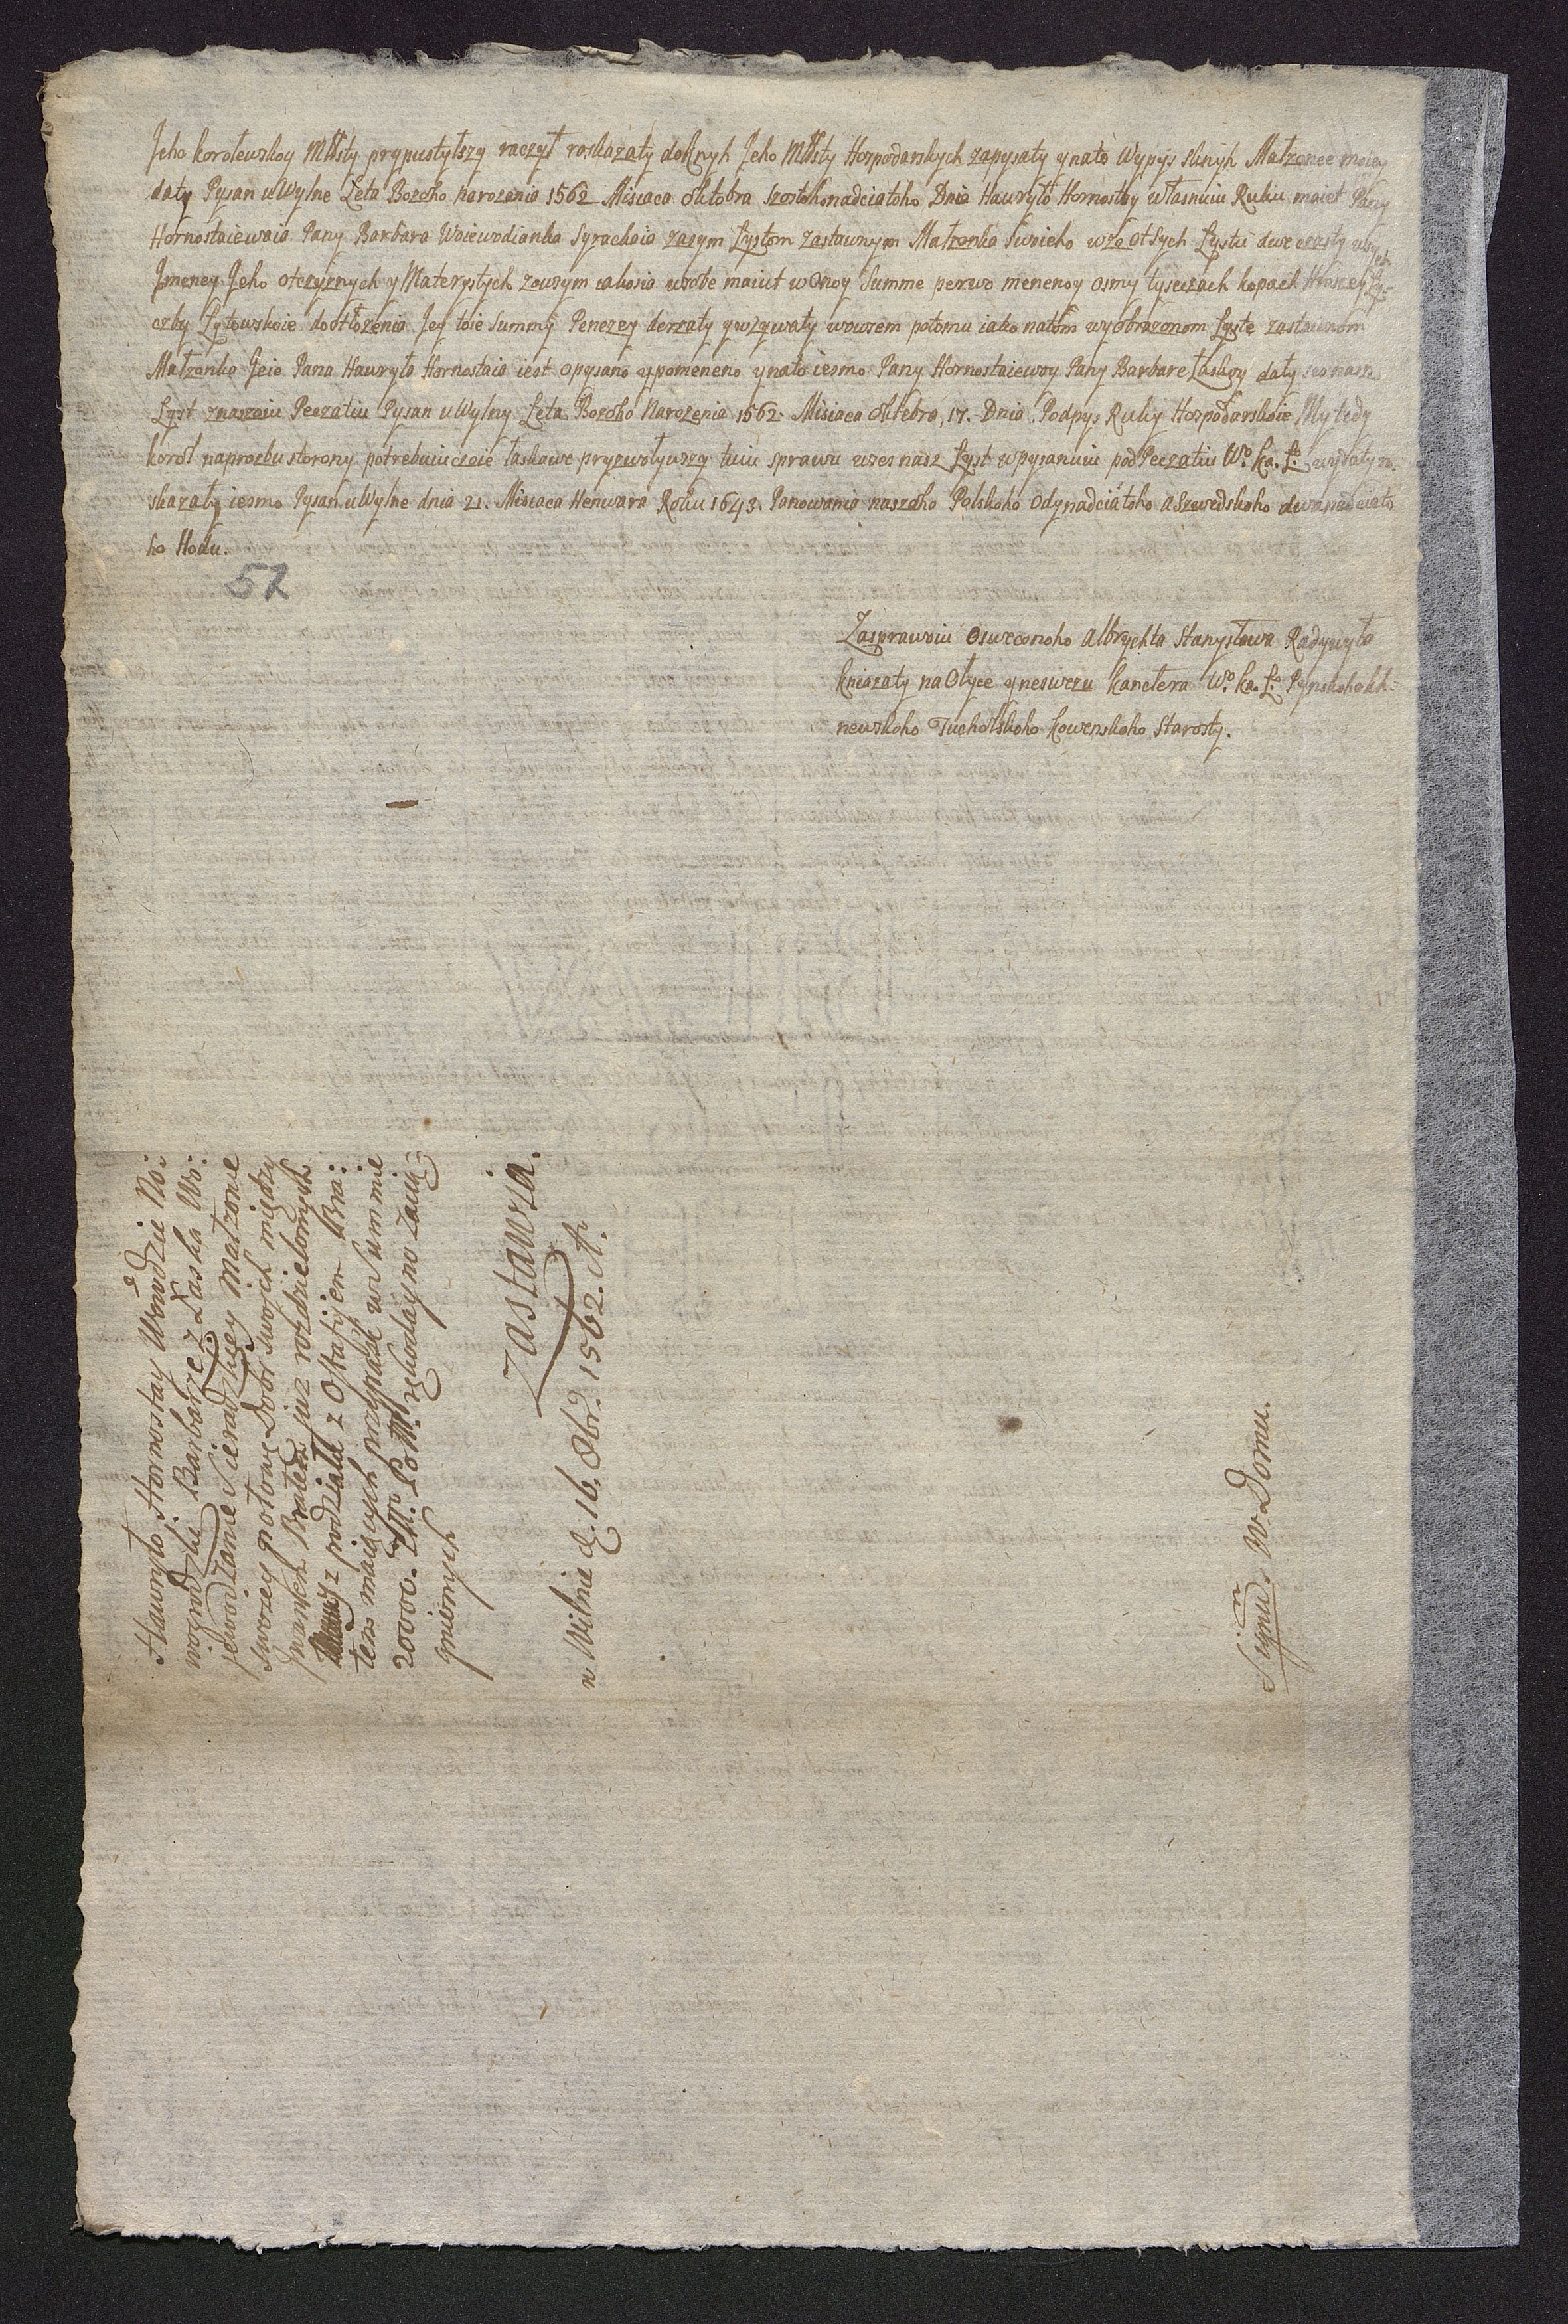 Jeho korolewskoy Młsty prypustytszy raczył roskazaty doknyh Jeho Młsty Hospodarskych zapysaty y nato Wypys sknyh Małzonce moiey
daty Pysan u Wylne Leta Bozoho narozenia 1562 Misiaca Oktobra szostohonadciatoho Dnia Hawryło Hornostay własnuiu Ruku maiet Pany
Hornostaiewaia Pany Barbara Woiewodianka Syrackaia zasym Lystom zastawnym Małzonka Swoieho wze otsych Lystu dwe czasty wsych
Jmeney Jeho otczyznych y Materystych zowsym iakosia wsobe maiut w Onoy Summe perwo menenoy osmy tyseczach kopach Hroszey Ly-
czby Lytowskoie do otłozenia Jey toie Summy Penezey derzaty y wzywaty wowsem potomu iako natom wyobrazonom Lyste zastawnom
Małzonka Jeie Pana Hawryła Hornostaia iest opysano y pomeneno y nato iesmo Pany Hornostaiewoy Pany Barbare Łaskoy daty seo nasz
Lyst znaszoiu Peczatiu Pysan u Wylny Leta Bozoho Narozenia 1562. Misiaca Oktebra, 17. Dnia. Podpys Ruky Hospodarskoie My tedy
korol naprozbu storony potrebuiuczoie łaskawe pryzwolywszy tuiu sprawu wzes nasz Lyst wpysanuiu pod Peczatiu Wo. kn. Lo. wydaty ro-
skazaty iesmo Pysan u Wylne dnia 21. Misiaca Henwara Roku 1643. Panowania naszoho Polskoho Odynadciatoho a Szwedskoho dwanadciato
ho Hodu.
52
Zasprawoiu Osweconoho Albrychta Stanysława Radywyła
kniazaty na Ołyce y neswizu kanclera Wo. kn. Lo. Pynskoho
newskoho Tucholskoho kowenskoho Starosty.
Hawryło Hornostay Wowodzic No:
wogrodzki Barbarze z Łaska Wo:
jewodzance Sieradzkiey Małzonce
swoiey połowę Dobr swoich między
pewnych Bratem już rozdzielonych
z podziału z Ostafijem Bra:
tem maiących przypaść w summie
20000. Zł. Poll. rękodayno zacią
gnionych
zastawia.
w Wilnie d. 16. 8br. 1562. A.
Sign. W Domu.